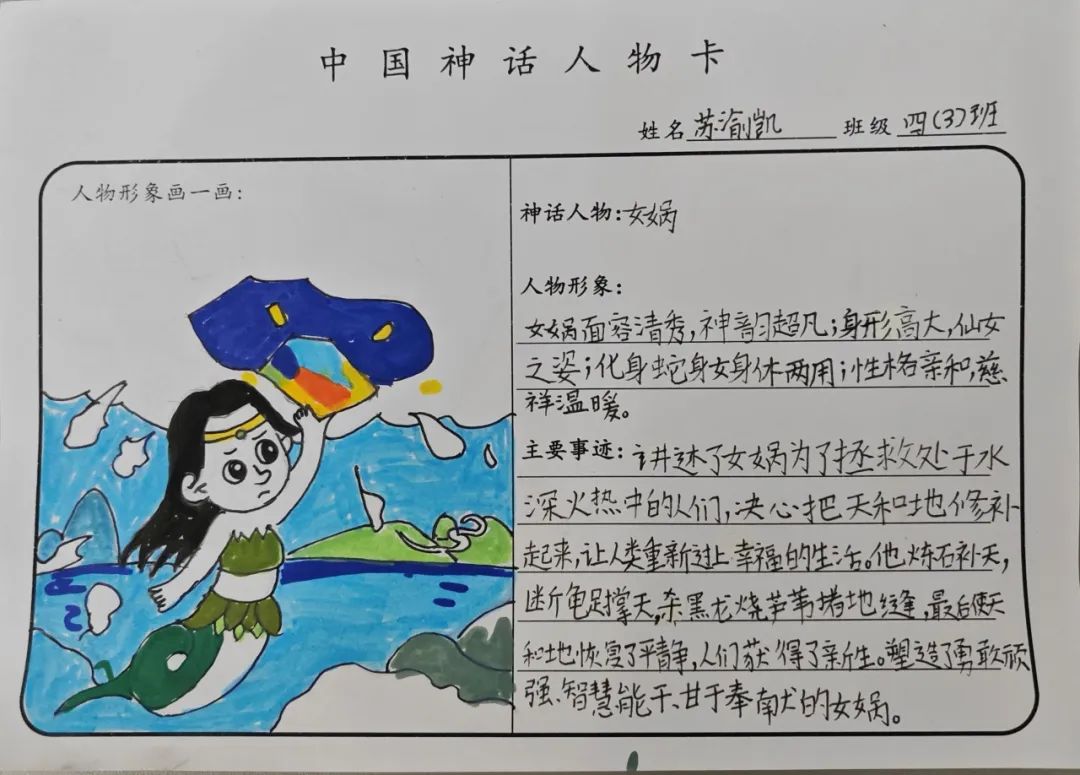 中国神话人物卡
姓名 苏渝凯 班级 四(3)班
人物形象画一画：
神话人物：女娲
人物形象：
女娲面容清秀，神韵超凡；身形高大，仙女
之姿；化身蛇身女身体两用；性格亲和，慈
祥温暖。
主要事迹：讲述了女娲为了拯救处于水
深火热中的人们，决心把天和地修补
起来，让人类重新过上幸福的生活。他炼石补天，
断龟足撑天，杀黑龙烧芦苇堵地缝，最后使天
和地恢复了平静，人们获得了新生。塑造了勇敢顽
强、智慧能干、甘于奉献的女娲。